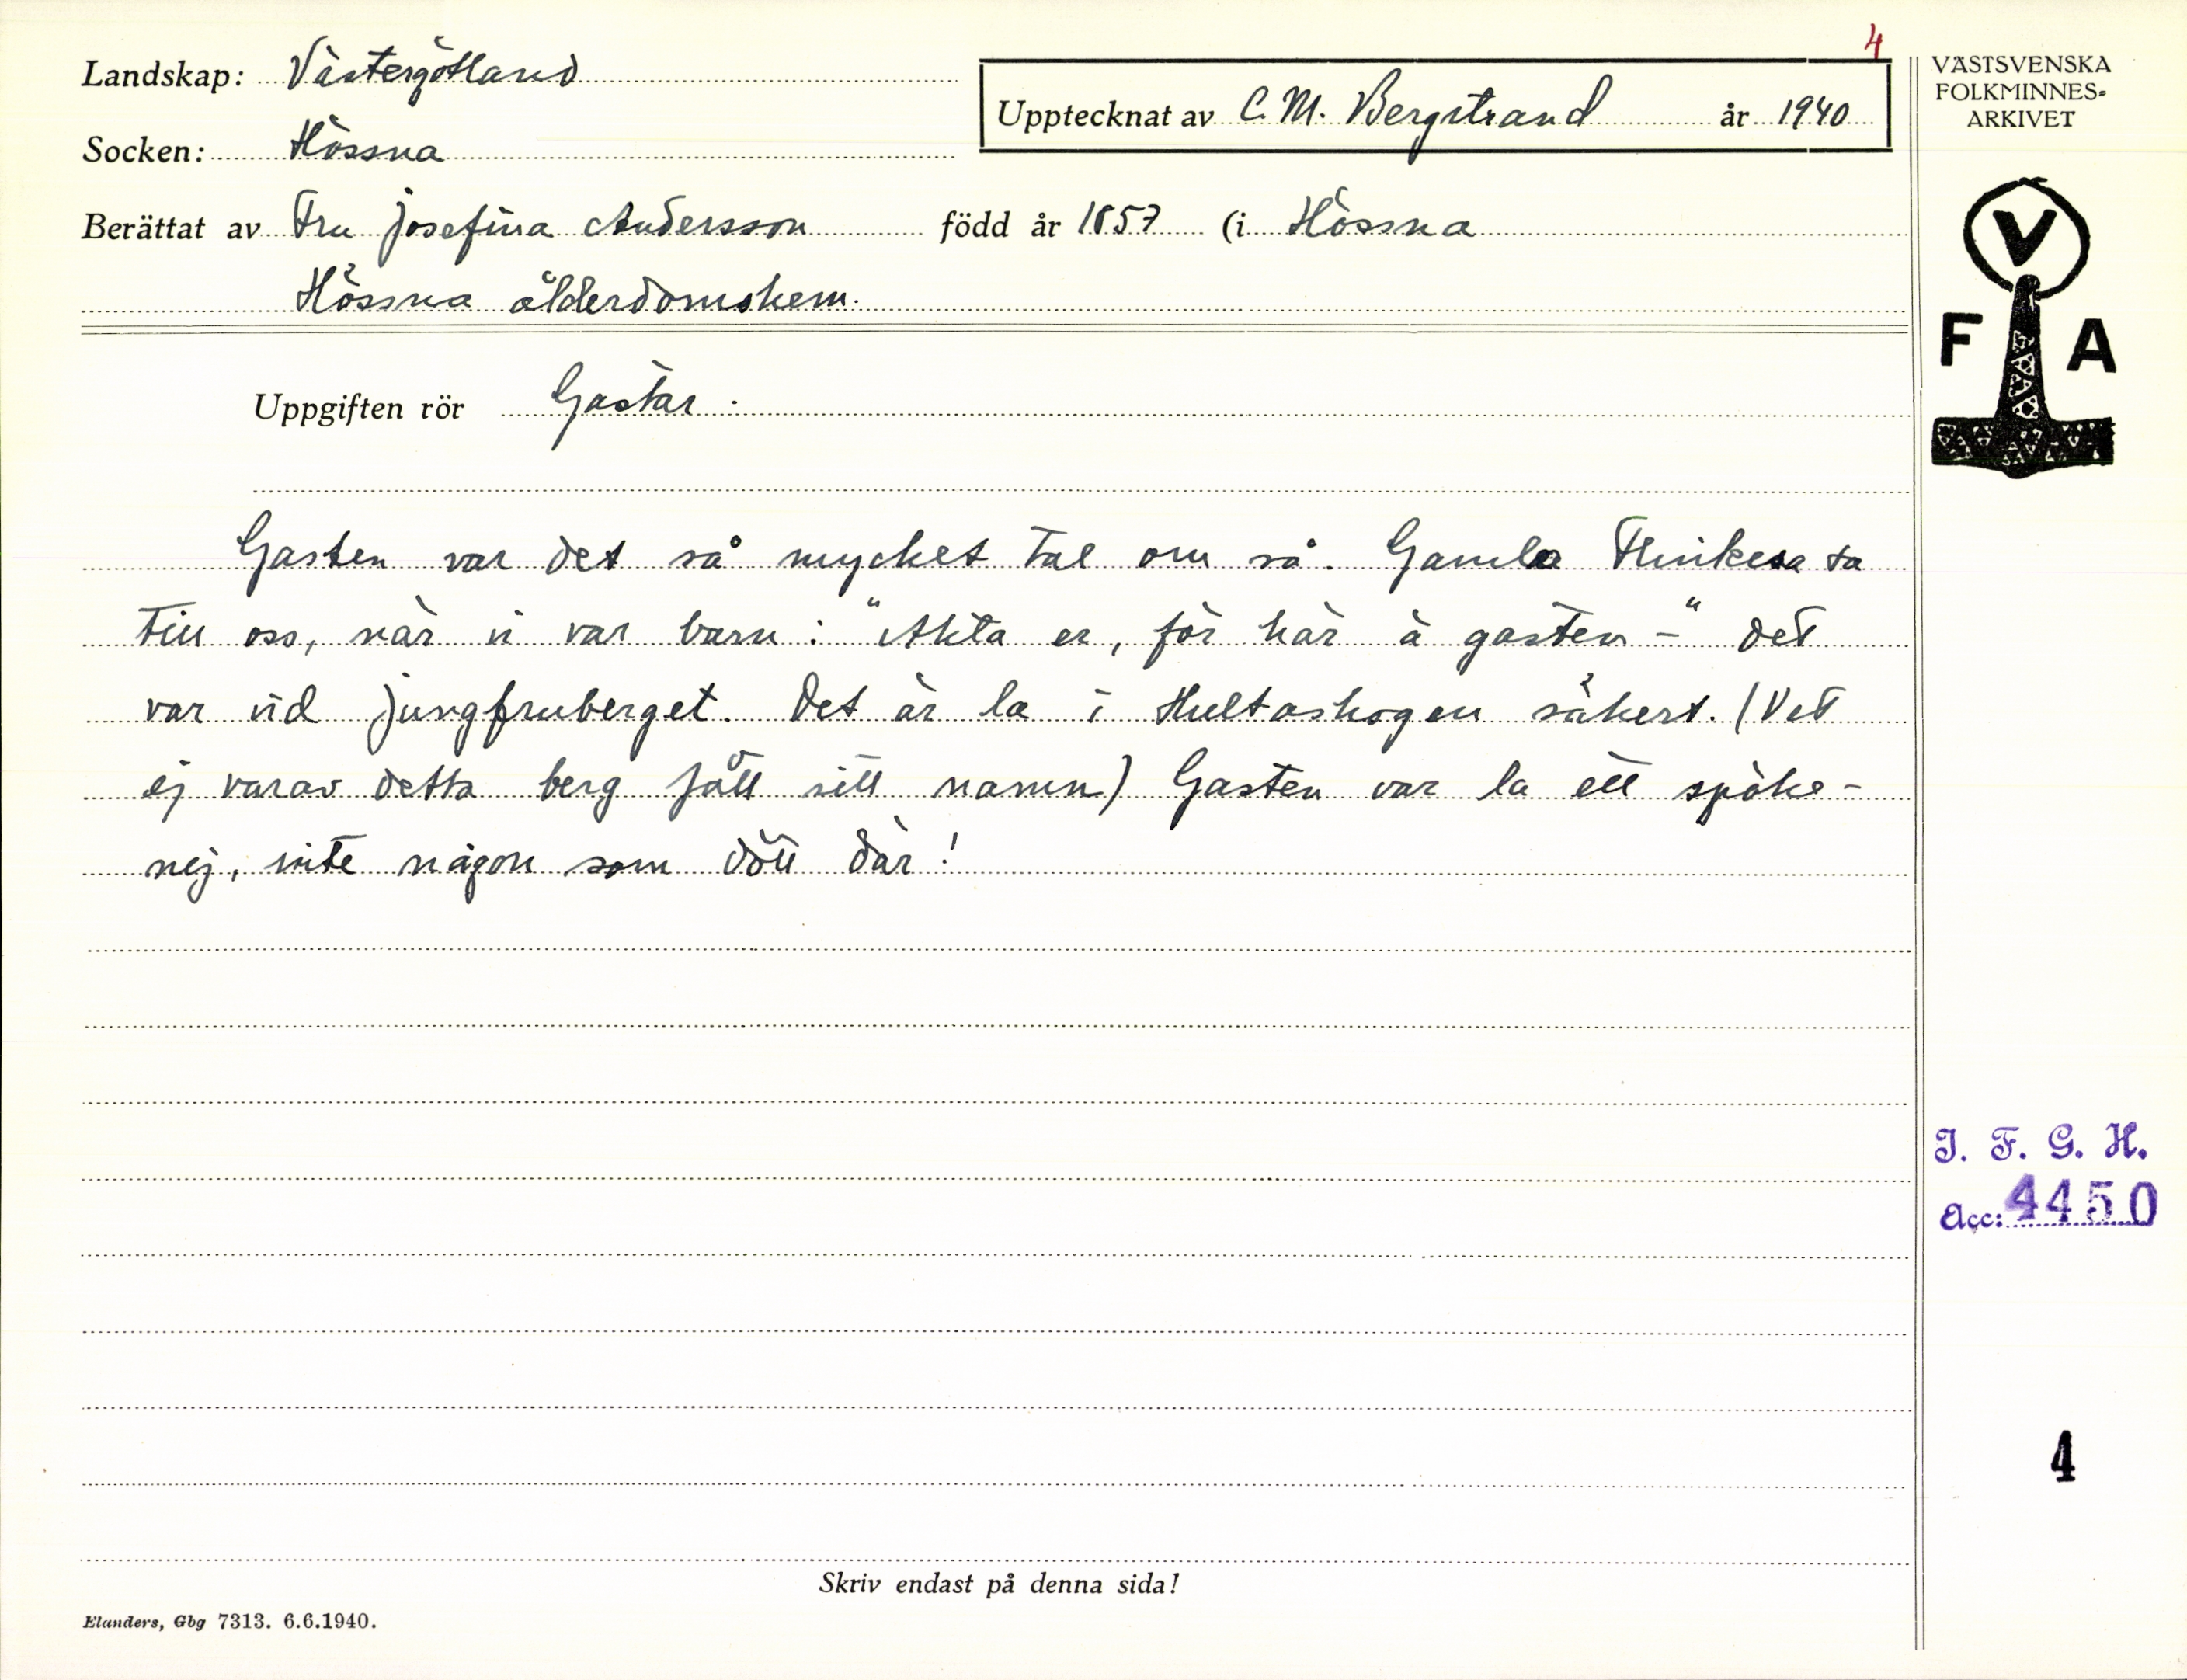 4
Landskap: Västergötland
Upptecknat av C. M. Bergstrand år 1940
Socken: Hössna
Berättat av Fru Josefina Andersson född år 1857 (i Hössna
Hössna ålderdomshem.
Uppgiften rör Gastar.
Gasten var det så mycket tal om så. Gamla sa
till oss, när vi var barn: "Akta er, för här ä gasten –" det
var vid Jungfruberget. Det är la i Hultaskogen säkert. (Vet
ej varav detta berg fått sitt namn) Gasten var la ett spöke –
nej, inte någon som dött där!
Skriv endast på denna sida!
Elanders, Gbg 7313. 6.6.1940.
VÄSTSVENSKA
FOLKMINNES-
ARKIVET
V
F A
I. F. G. H.
Acc: 4450
4